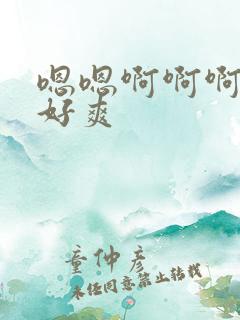 嗯嗯啊啊啊
好爽
童仲彦
未经同意禁止转载